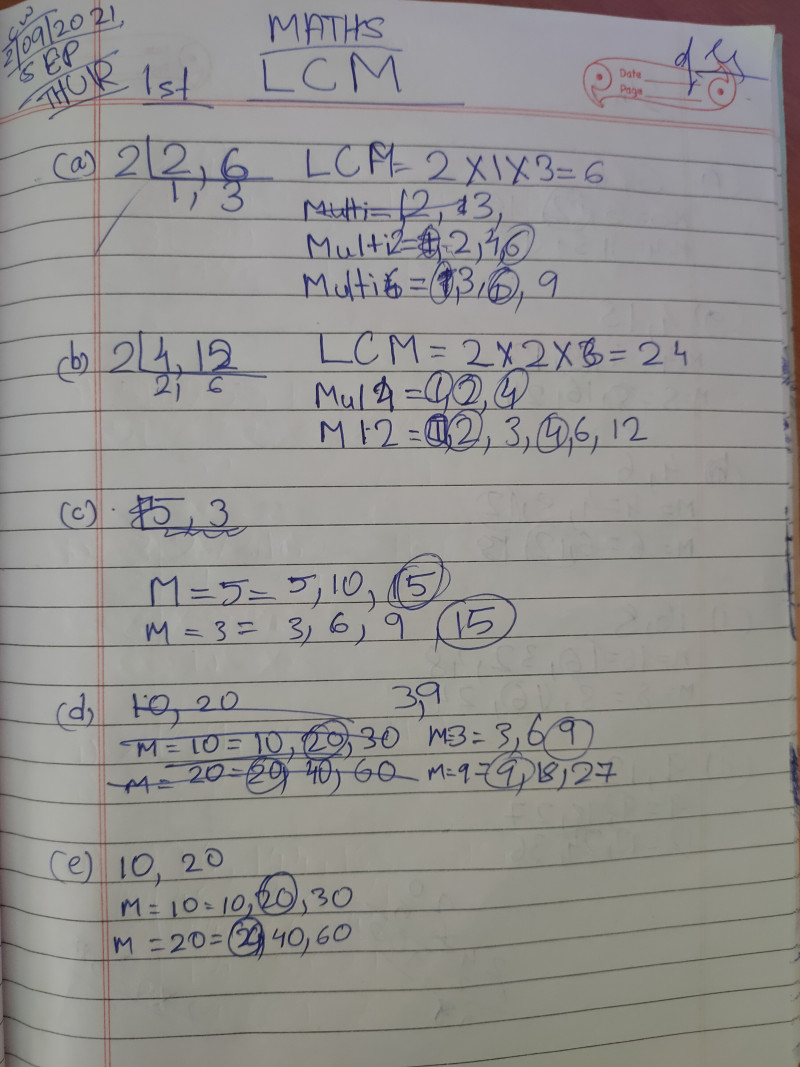 CW
2/09/2021
SEP
THUR
MATHS
1st LCM
Date
Page
(a) 2 2, 6 LCM = 2 X 1 X 3 = 6
1, 3
Multi = 12, 13,
Multi2 = 2, 4, 6
Multi6 = 3, 6, 9
(b) 2 4, 12 LCM = 2 X 2 X 3 = 24
2, 6
Mul4 = 1, 2, 4
M12 = 1, 2, 3, 4, 6, 12
(c) 5, 3
M = 5 = 5, 10, 15
M = 3 = 3, 6, 9 15
(d) 10, 20 3, 9
M = 10 = 10, 20, 30 M=3 = 3, 6 9
M = 20 = 20, 40, 60 M=9= 9, 18, 27
(e) 10, 20
M = 10 = 10, 20, 30
M = 20 = 20, 40, 60